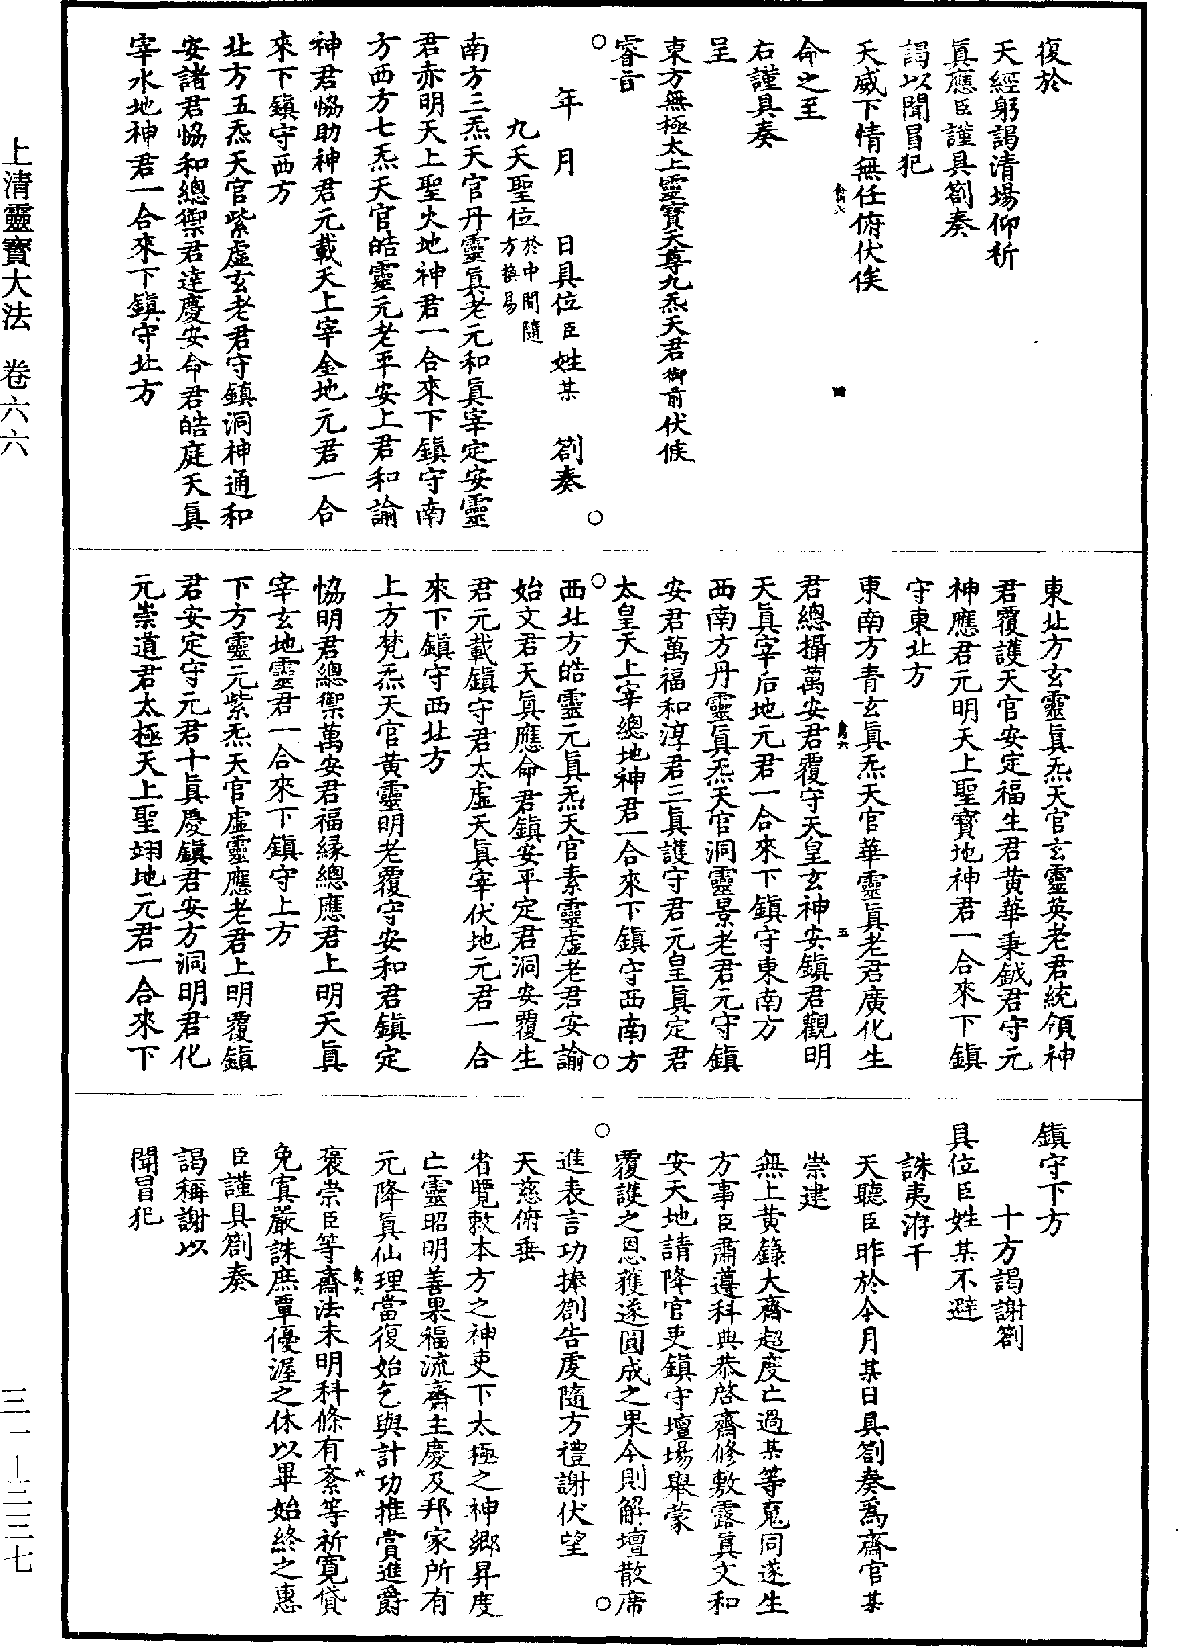 復於
天經躬謁清場仰祈
眞應臣謹具劄奏
謁以聞冒犯
天威下情無任俯伏俟
命之至
右謹具奏
呈
東方無極太上靈寶天尊九炁天君御前伏候
睿旨
年　月　日具位臣姓某　劄奏
九天聖位於中間隨方換易
南方三炁天官丹靈眞老元和眞宰定安靈
君赤明天上聖火地神君一合來下鎮守南
方西方七炁天官皓靈元老平安上君和諭
神君恊助神君元載天上宰金地元君一合
來下鎮守西方
北方五炁天官紫虛玄老君守鎮洞神通和
安諸君恊和總禦君達慶安命君皓庭天眞
宰水地神君一合來下鎮守北方
東北方玄靈眞炁天官玄靈英老君統領神
君覆護天官安定福生君黃華秉鉞君守元
神應君元明天上聖寶地神君一合來下鎮
守東北方
東南方青玄眞炁天官華靈眞老君廣化生
君總攝萬安君覆守天皇玄神安鎮君觀明
天眞宰后地元君一合來下鎮守東南方
西南方丹靈眞炁天官洞靈景老君元守鎮
安君萬福和淳君三眞護守君元皇眞定君
太皇天上宰總地神君一合來下鎮守西南方
西北方皓靈元眞炁天官素靈虛老君安諭
始文君天眞應命君鎮安平定君洞安覆生
君元載鎮守君太虛天眞宰伏地元君一合
來下鎮守西北方
上方梵炁天官黃靈明老覆守安和君鎮定
恊明君總禦萬安君福緣總應君上明天眞
宰玄地靈君一合來下鎮守上方
下方靈元紫炁天官虛靈應老君上明覆鎮
君安定守元君十眞慶鎮君安方洞明君化
元崇道君太極天上聖翊地元君一合來下
鎮守下方
十方謁謝劄
具位臣姓某不避
誅夷洊干
天聽臣昨於今月某日具劄奏爲齋官某
崇建
無上黃籙大齋超度亡過某等䰟同遂生
方事臣肅遵科典恭啓齋修敷露眞文和
安天地請降官吏鎮守壇場舉蒙
覆護之恩獲遂圓成之果今則解壇散席
進表言功捧劄告虔隨方禮謝伏望
天慈俯垂
省覽敕本方之神吏下太極之神鄉昇度
亡靈昭明善果福流齋主慶及邦家所有
元降眞仙理當復始乞與計功推賞進爵
褒崇臣等齋法未明科條有紊等祈寬貸
免寘嚴誅庶覃優渥之休以畢始終之惠
臣謹具劄奏
謁稱謝以
聞冒犯
上清靈寶大法　卷六六
三一－三三七